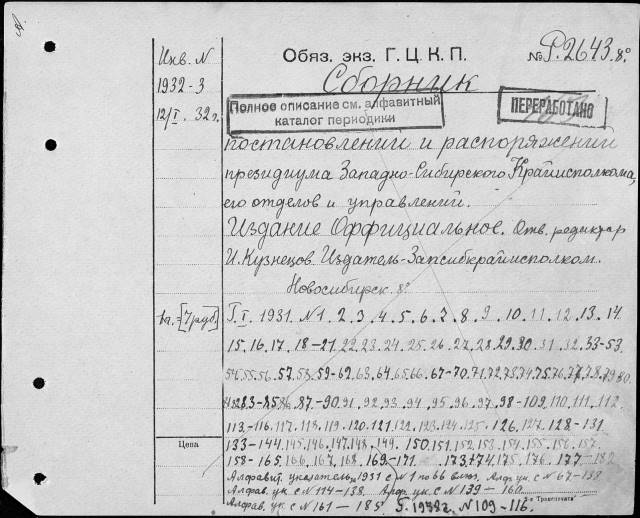 Инв. N
1932-3
12/I. 32 г.
Обяз. экз. Г.Ц.К.П.
№ Р.2643.8°
Сборник
Полное описание см. алфавитный
каталог периодики
ПЕРЕРАБОТАНО
постановлений и распоряжений
президиума Западно-Сибирского Крайисполкома,
его отделов и управлений.
Издание Оффициальное. Отв. редактор
И. Кузнецов Издатель-Запсибкрайисполком.
Новосибирск. 8°
[7 руб]
Г.I. 1931. N 1, 2, 3, 4, 5, 6, 7, 8, 9, 10, 11, 12, 13, 14
15, 16, 17, 18-21, 22, 23, 24, 25, 26, 27, 28, 29, 30, 31, 32, 33-53
54, 55, 56, 57, 58, 59-62, 63, 64, 65, 66, 67-70, 71, 72, 73, 74, 75, 76, 77, 78, 79, 80
83-85, 86, 87-90, 91, 92, 93, 94, 95, 96, 97, 98-109, 110, 111, 112
113-116, 117, 118, 119, 120, 121, 122, 123, 124, 125, 126, 127, 128-131
Цена
133-144, 145, 146, 147, 148, 149, 150, 151, 152, 153, 154, 155, 156, 157,
158-165, 166, 167, 168, 169-171, 173, 174, 175, 176, 177-182
Алфавит. указатель 1931 с N 1 по 66 вкл. Алф. ук. с N 67-138
Алфав. ук. с N 114-138. Алф. ук. с N 139-160
Алфав. ук. с N 161-185 Г. 1932 г. N 109-116.